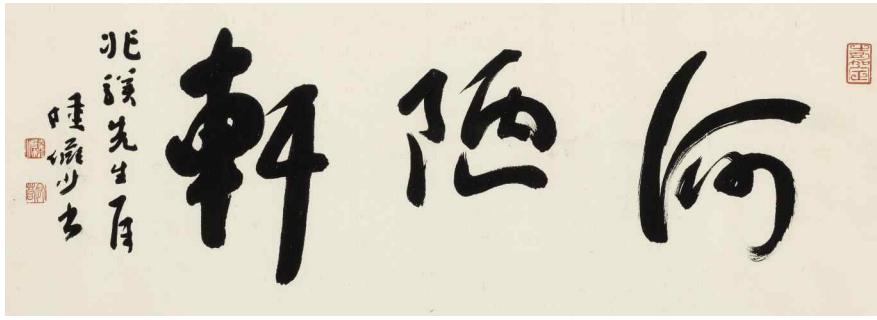 何陋軒
兆謨先生屬
陸儼少書